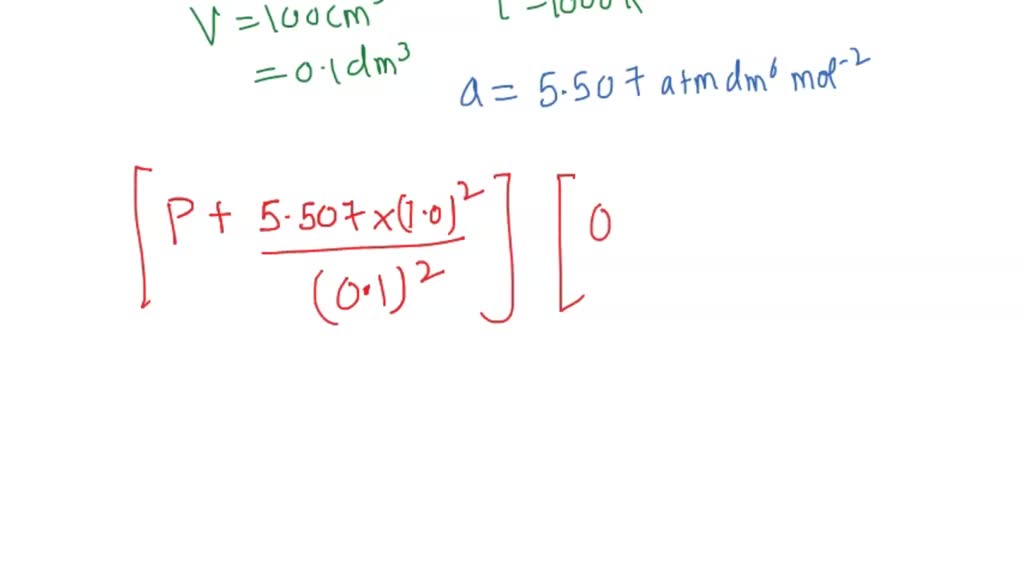 V = 100 cm³
= 0.1 dm³
a = 5.507 atm dm⁶ mol⁻²
[P + 5.507 × (1.0)² / (0.1)²] [0